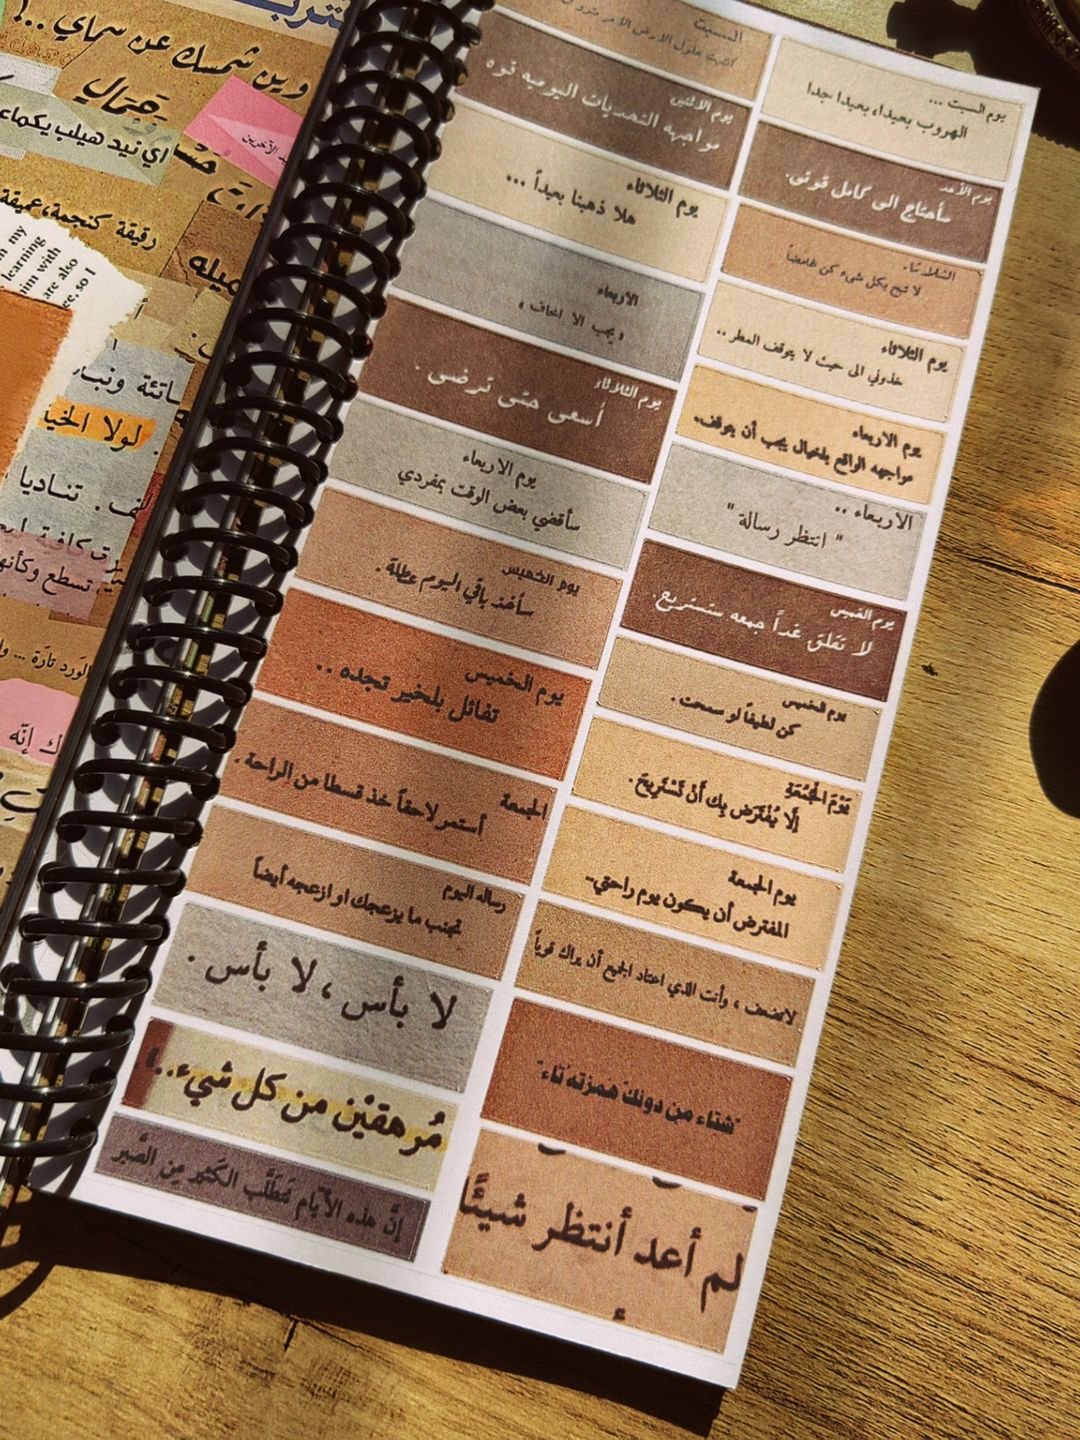 يوم السبت ...
الهروب بعيداء بعيدا جدا
يوم الأحد
سأحتاج الى كامل قوتي.
الثلاثاء
لا تبح بكل شيء كن غامضاً
يوم الثلاثاء
خذوني الى حيث لا يتوقف المطر ..
يوم الاربعاء
مواجهه الواقع يلخيال يجب أن يتوقف.
الاربعاء ..
" انتظر رسالة "
يوم الخميس
لا تقلق غداً جمعه ستستريح.
يوم الخميس
كن لطيفاً لو سمحت .
يَوْمَ الْجُمْعَةِ
إِلَّا يُفْتَرَض بِك أَنْ تَسْتَرِيحَ .
يوم الجمعة
المفترض أن يكون يوم راحتي..
لاتضعف ، وأنت الذي اعتاد الجميع أن يراك قوياً
"شتاء من دونك همزته تاء"
لم أعد أنتظر شيئًا
السبت
يوم الاثنين
مواجهه التحديات اليوميه قوه
يوم الثلاثاء
هلا ذهبنا بعيداً ...
الاربعاء
« يجب الا اخاف »
يوم الثلاثاء
أسعى حتى ترضى .
يوم الاربعاء
سأقضي بعض الوقت بمفردي
يوم الخميس
سأخذ باقي اليوم عطلة .
يوم الخميس
تفائل بلخير تجده ..
الجمعة
أستمر لاحقاً خذ قسطا من الراحة .
رساله اليوم
تجنب ما يزعجك او ازعجه أيضاً
لا بأس ، لا بأس .
مُرهقيْن من كل شيء..!
إنَّ هذه الأيام تَتَطلَّب الكَثير مِن الصَّبر
وين شمسك عن سماي ..!
جمال
اي نيد هيلب يكماء
رقيقة كنجمة، عميقة
جميله
my
learning
him with
are also
ee, so I
لولا الخيا
. تناديا
تسطع وكأنها
الورد تارَة ...
ك إنّه